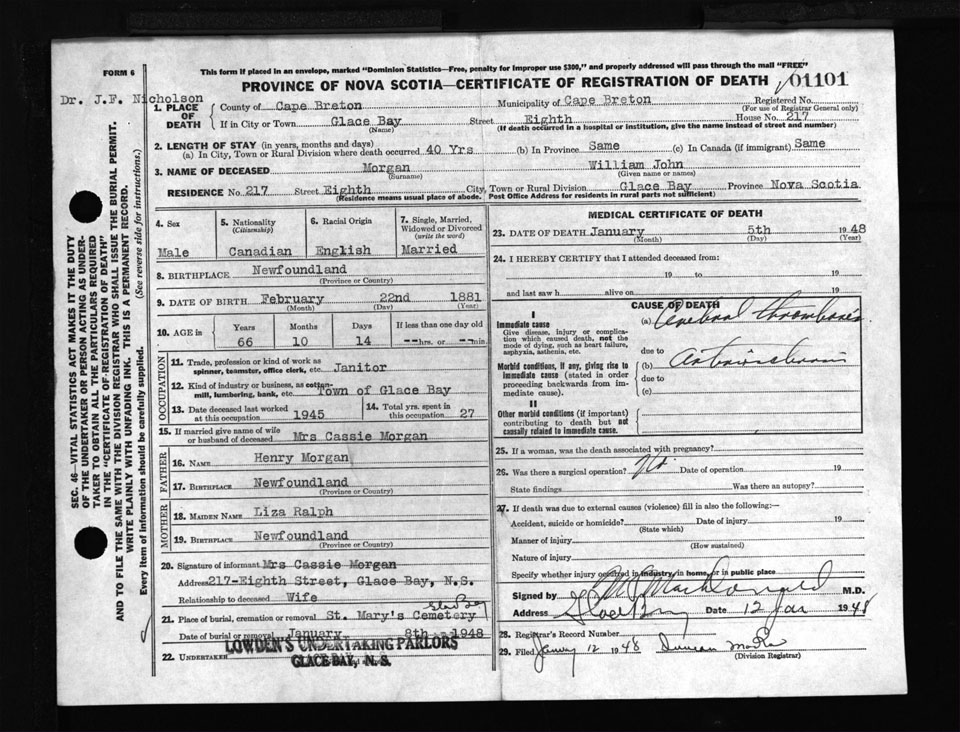 FORM 6
This form if placed in an envelope, marked "Dominion Statistics—Free, penalty for improper use $300," and properly addressed will pass through the mail "FREE"
PROVINCE OF NOVA SCOTIA—CERTIFICATE OF REGISTRATION OF DEATH 01101
Dr. J.F. Nicholson
1. PLACE OF DEATH County of Cape Breton Municipality of Cape Breton Registered No.
(For use of Registrar General only)
If in City or Town Glace Bay Street Eighth House No. 217
(Name) (If death occurred in a hospital or institution, give the name instead of street and number)
2. LENGTH OF STAY (in years, months and days)
(a) In City, Town or Rural Division where death occurred 40 Yrs (b) In Province Same (c) In Canada (if immigrant) Same
3. NAME OF DECEASED Morgan William John
(Surname) (Given name or names)
RESIDENCE No. 217 Street Eighth City, Town or Rural Division Glace Bay Province Nova Scotia
(Residence means usual place of abode. Post Office Address for residents in rural parts not sufficient)
4. Sex Male
5. Nationality (Citizenship) Canadian
6. Racial Origin English
7. Single, Married, Widowed or Divorced (write the word) Married
8. BIRTHPLACE Newfoundland
(Province or Country)
9. DATE OF BIRTH February 22nd 1881
(Month) (Day) (Year)
10. AGE in Years Months Days If less than one day old
66 10 14 --hrs. or --min.
OCCUPATION
11. Trade, profession or kind of work as spinner, teamster, office clerk, etc. Janitor
12. Kind of industry or business, as cotton-mill, lumbering, bank, etc. Town of Glace Bay
13. Date deceased last worked at this occupation 1945
14. Total yrs. spent in this occupation 27
15. If married give name of wife or husband of deceased Mrs Cassie Morgan
FATHER
16. NAME Henry Morgan
17. BIRTHPLACE Newfoundland
(Province or Country)
MOTHER
18. MAIDEN NAME Liza Ralph
19. BIRTHPLACE Newfoundland
(Province or Country)
20. Signature of informant Mrs Cassie Morgan
Address 217-Eighth Street, Glace Bay, N.S.
Relationship to deceased Wife
21. Place of burial, cremation or removal St. Mary's Cemetery
Date of burial or removal January 8th 1948
22. UNDERTAKER LOWDEN'S UNDERTAKING PARLORS
GLACE BAY, N. S.
MEDICAL CERTIFICATE OF DEATH
23. DATE OF DEATH January 5th 1948
(Month) (Day) (Year)
24. I HEREBY CERTIFY that I attended deceased from:
19 to 19
and last saw h alive on 19
CAUSE OF DEATH
I
Immediate cause
Give disease, injury or complication which caused death, not the mode of dying, such as heart failure, asphyxia, asthenia, etc.
(a) Cerebral Thrombosis
due to
Morbid conditions, if any, giving rise to immediate cause (stated in order proceeding backwards from immediate cause).
(b)
due to
(c)
II
Other morbid conditions (if important) contributing to death but not causally related to immediate cause.
25. If a woman, was the death associated with pregnancy?
26. Was there a surgical operation? No. Date of operation 19
State findings Was there an autopsy?
27. If death was due to external causes (violence) fill in also the following:—
Accident, suicide or homicide? Date of injury 19
(State which)
Manner of injury
(How sustained)
Nature of injury
Specify whether injury occurred in industry, in home, or in public place
Signed by MacDonald M.D.
Address Glace Bay Date 12 Jan 1948
28. Registrar's Record Number
29. Filed January 12 1948 Duncan
(Division Registrar)
SEC. 46—VITAL STATISTICS ACT MAKES IT THE DUTY
OF THE UNDERTAKER OR PERSON ACTING AS UNDER-
TAKER TO OBTAIN ALL THE PARTICULARS REQUIRED
IN THE "CERTIFICATE OF REGISTRATION OF DEATH"
AND TO FILE THE SAME WITH THE DIVISION REGISTRAR WHO SHALL ISSUE THE BURIAL PERMIT.
WRITE PLAINLY WITH UNFADING INK. THIS IS A PERMANENT RECORD.
Every item of information should be carefully supplied. (See reverse side for instructions.)